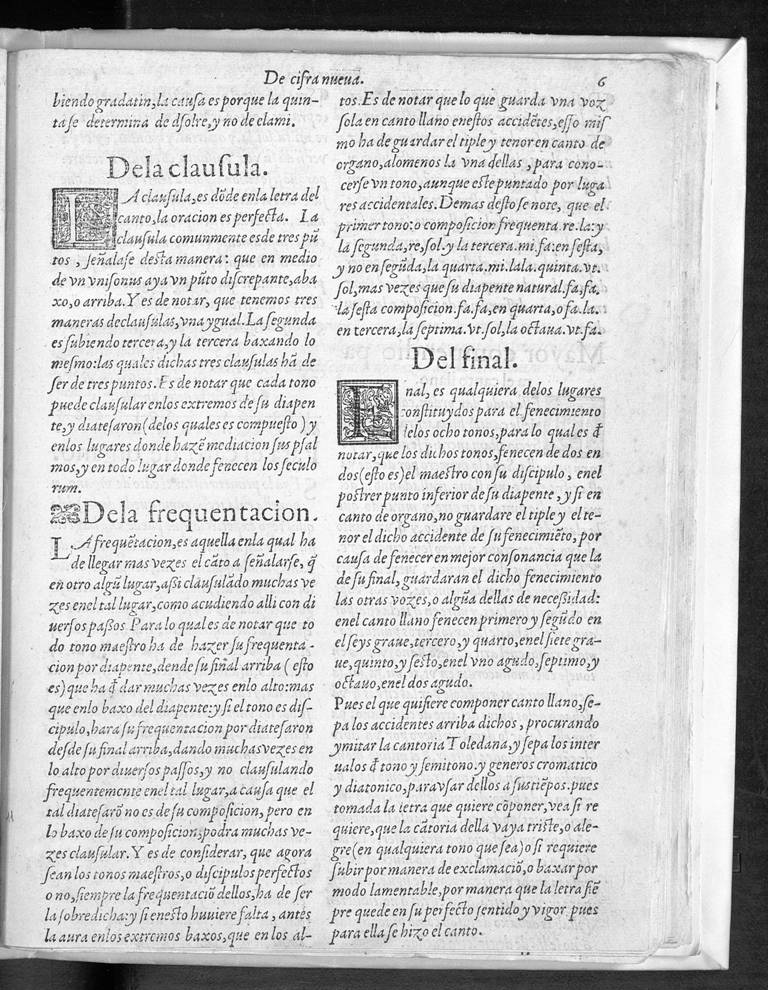 De cifra nueva.
6
biendo gradatin, la causa es porque la quin-
ta se determina de dsolre, y no de elami.
Dela clausula.
LA clausula, es dõde enla letra del
canto, la oracion es perfecta. La
clausula comunmente es de tres pũ
tos, señalase desta manera: que en medio
de vn vnisonus aya vn pũto discrepante, aba
xo, o arriba. Y es de notar, que tenemos tres
maneras declausulas, vna ygual. La segunda
es subiendo tercera, y la tercera baxando lo
mesmo: las quales dichas tres clausulas hã de
ser de tres puntos. Es de notar que cada tono
puede clausular enlos extremos de su diapen
te, y diatesaron (delos quales es compuesto) y
enlos lugares donde hazẽ mediacion sus psal
mos, y en todo lugar donde fenecen los seculo
rum.
Dela frequentacion.
LA frequẽtacion, es aquella enla qual ha
de llegar mas vezes el cãto a señalarse, q̃
en otro algũ lugar, assi clausulãdo muchas ve
zes enel tal lugar, como acudiendo alli con di
uersos passos Para lo qual es de notar que to
do tono maestro ha de hazer su frequenta-
cion por diapente, dende su final arriba (esto
es) que ha đ dar muchas vezes enlo alto: mas
que enlo baxo del diapente: y si el tono es dis-
cipulo, hara su frequentacion por diatesaron
desde su final arriba, dando muchas vezes en
lo alto por diuersos passos, y no clausulando
frequentemente enel tal lugar, a causa que el
tal diatesarõ no es de su composicion, pero en
lo baxo de su composicion, podra muchas ve-
zes clausular. Y es de considerar, que agora
sean los tonos maestros, o discipulos perfectos
o no, siempre la frequentaciõ dellos, ha de ser
la sobredicha: y si enesto huuiere falta, antes
la aura enlos extremos baxos, que en los al-
tos. Es de notar que lo que guarda vna voz
sola en canto llano enestos accidẽtes, esso mis
mo ha de guardar el tiple y tenor en canto de
organo, alomenos la vna dellas, para cono-
cerse vn tono, aunque este puntado por luga
res accidentales. Demas desto se note, que el
primer tono: o composicion frequenta. re. la: y
la segunda, re, sol. y la tercera. mi. fa: en sesta,
y no en segũda, la quarta. mi. la la. quinta. vt.
sol, mas vezes que su diapente natural. fa, fa.
la sesta composicion. fa. fa, en quarta, o fa. la.
en tercera, la septima. vt. sol, la octaua. vt. fa.
Del final.
FInal, es qualquiera delos lugares
constituydos para el fenecimiento
delos ocho tonos, para lo qual es đ
notar, que los dichos tonos, fenecen de dos en
dos (esto es) el maestro con su discipulo, enel
postrer punto inferior de su diapente, y si en
canto de organo, no guardare el tiple y el te-
nor el dicho accidente de su fenecimiẽto, por
causa de fenecer en mejor consonancia que la
de su final, guardaran el dicho fenecimiento
las otras vozes, o algũa dellas de necessidad:
enel canto llano fenecen primero y segũdo en
el seys graue, tercero, y quarto, enel siete gra-
ue, quinto, y sesto, enel vno agudo, septimo, y
octauo, enel dos agudo.
Pues el que quisiere componer canto llano, se-
pa los accidentes arriba dichos, procurando
ymitar la cantoria Toledana, y sepa los inter
ualos đ tono y semitono. y generos cromatico
y diatonico, para vsar dellos a sus tiẽpos. pues
tomada la letra que quiere cõponer, vea si re
quiere, que la cãtoria della vaya triste, o ale-
gre (en qualquiera tono que sea) o si requiere
subir por manera de exclamaciõ, o baxar por
modo lamentable, por manera que la letra siẽ
pre quede en su perfecto sentido y vigor pues
para ella se hizo el canto.